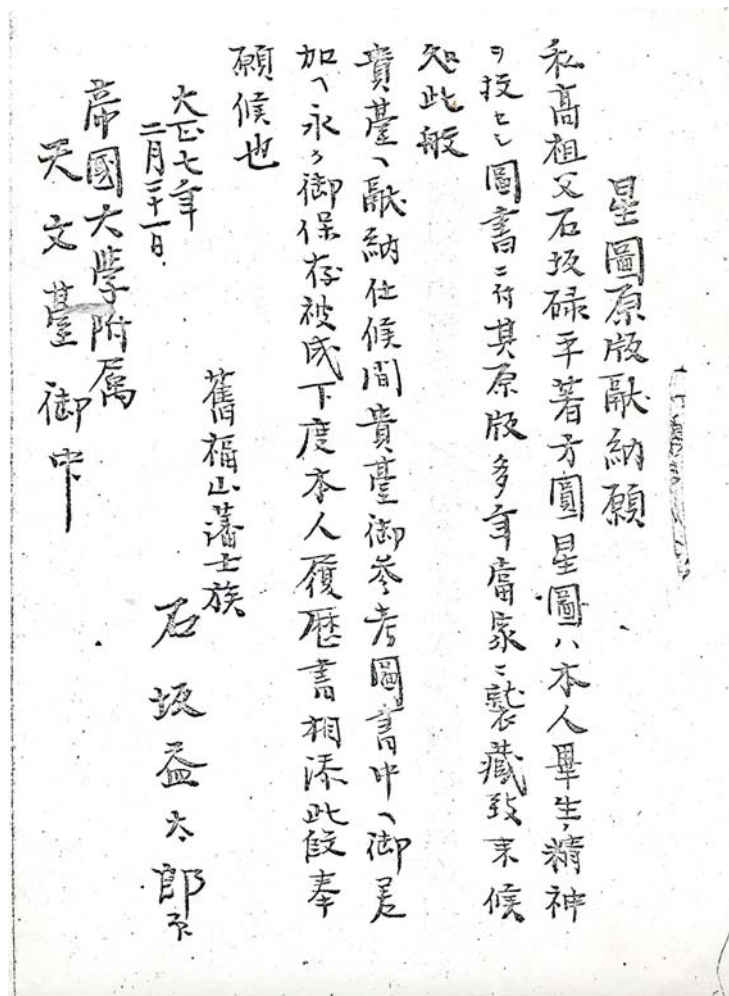 星圖原版献納願
私髙祖父石坂碌平著方圓星圖ハ本人畢生ノ精神
ヲ投セシ圖書ニ付其原版多年當家ニ襲藏致来候
処此般
貴䑓ヘ献納仕候間貴䑓御參考圖書中ヘ御差
加ヘ永ク御保存被成下度本人履歴書相添此段奉
願候也
大正七年
二月二十一日
舊福山藩士族
石坂益太郎
帝國大學附属
天文䑓御中